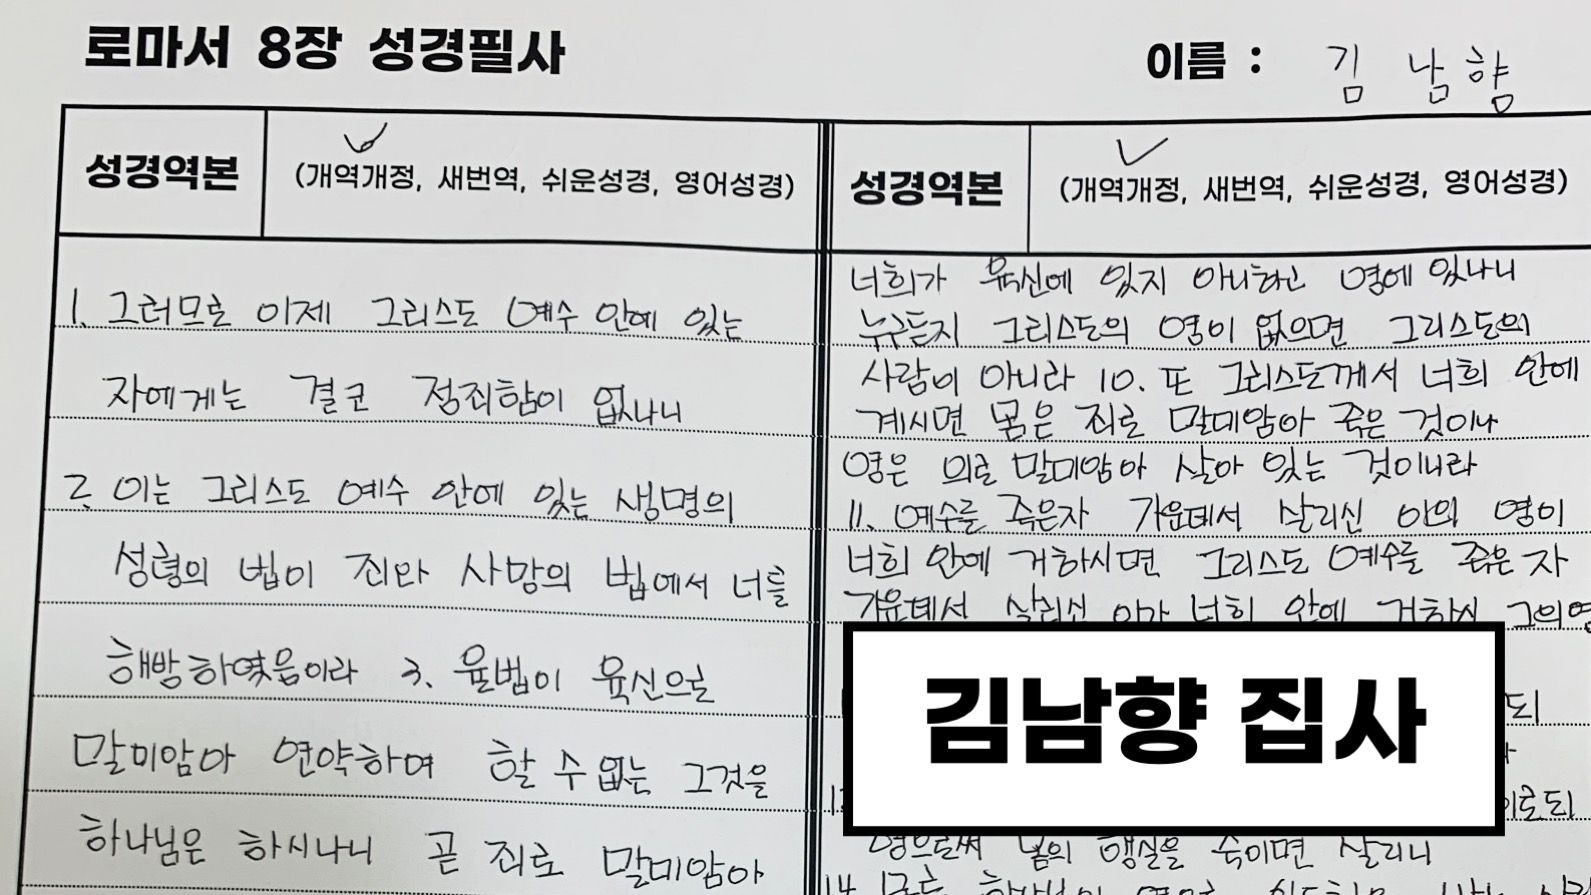 로마서 8장 성경필사
이름 : 김 남 향
성경역본 (개역개정, 새번역, 쉬운성경, 영어성경)
1. 그러므로 이제 그리스도 예수 안에 있는
자에게는 결코 정죄함이 없나니
2. 이는 그리스도 예수 안에 있는 생명의
성령의 법이 죄와 사망의 법에서 너를
해방하였음이라 3. 율법이 육신으로
말미암아 연약하여 할 수 없는 그것을
하나님은 하시나니 곧 죄로 말미암아
성경역본 (개역개정, 새번역, 쉬운성경, 영어성경)
너희가 육신에 있지 아니하고 영에 있나니
누구든지 그리스도의 영이 없으면 그리스도의
사람이 아니라 10. 또 그리스도께서 너희 안에
계시면 몸은 죄로 말미암아 죽은 것이나
영은 의로 말미암아 살아 있는 것이니라
11. 예수를 죽은자 가운데서 살리신 이의 영이
너희 안에 거하시면 그리스도 예수를 죽은 자
가운데서 살리신 이가 너희 안에 거하시 그의영
김남향 집사
이로되
영으로써 몸의 행실을 죽이면 살리니
14.